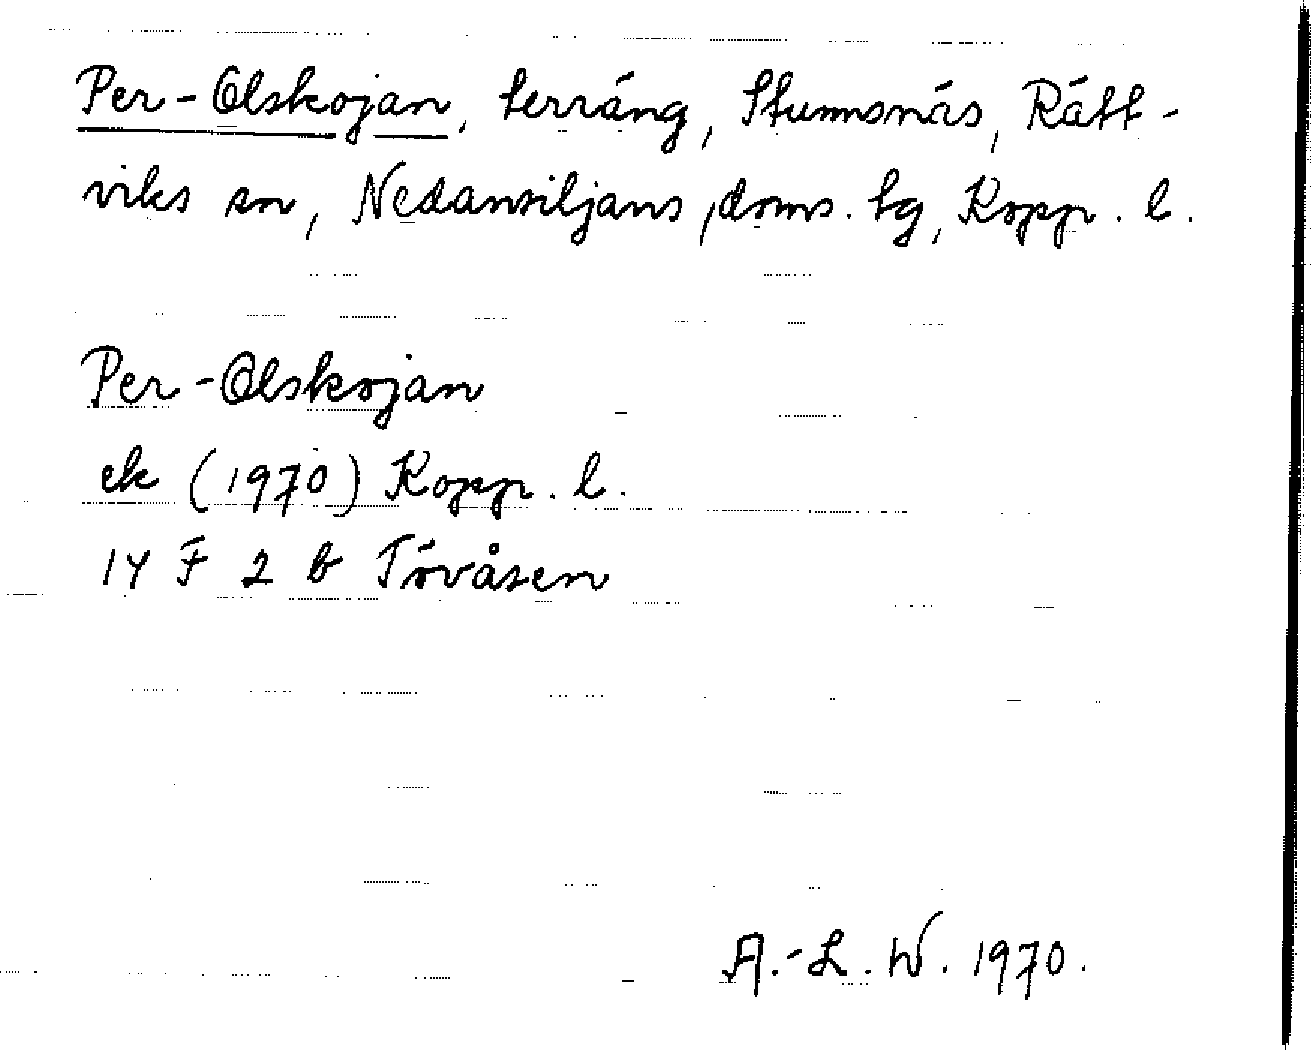 Per-Olskojan, terräng, Stumsnäs, Rätt-
viks sn, Nedansiljans doms. tg, Kopp. l.
Per-Olskojan
ek (1970) Kopp. l.
14 F 2 b Tövåsen
A.-L. W. 1970.